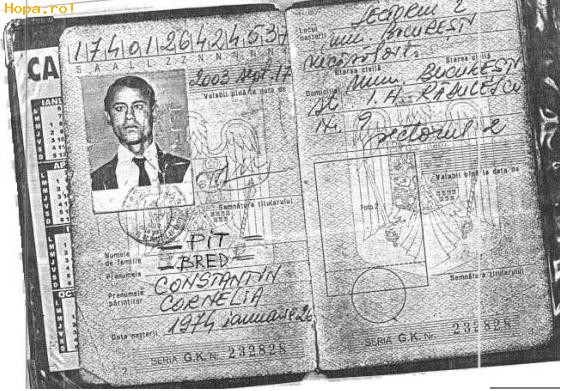 Hopa.ro!
CA
IANU
L M M J V S D
AP
L M M J V S D
I
L M M J V S D
OC
1 7 4 0 1 2 6 4 2 4 5 3
S A A L L Z Z N N N N N
2003 Sept. 17
Valabil până la data de
Semnătura titularului
Numele de familie
PIT
Prenumele
BRED
Prenumele părinţilor
CONSTANTIN
CORNELIA
Data naşterii
1974 ianuarie 26
SERIA G.K. Nr. 232828
2
Locul naşterii
SECTORUL 2
mun. BUCUREŞTI
Starea civilă
Starea civilă
necăsătorit
Domiciliul
Mun. BUCUREŞTI
I. H. RĂDULESCU
Nr. 9
sectorul 2
Valabil până la data de
Foto 2
Semnătura titularului
SERIA G.K. Nr. 232828